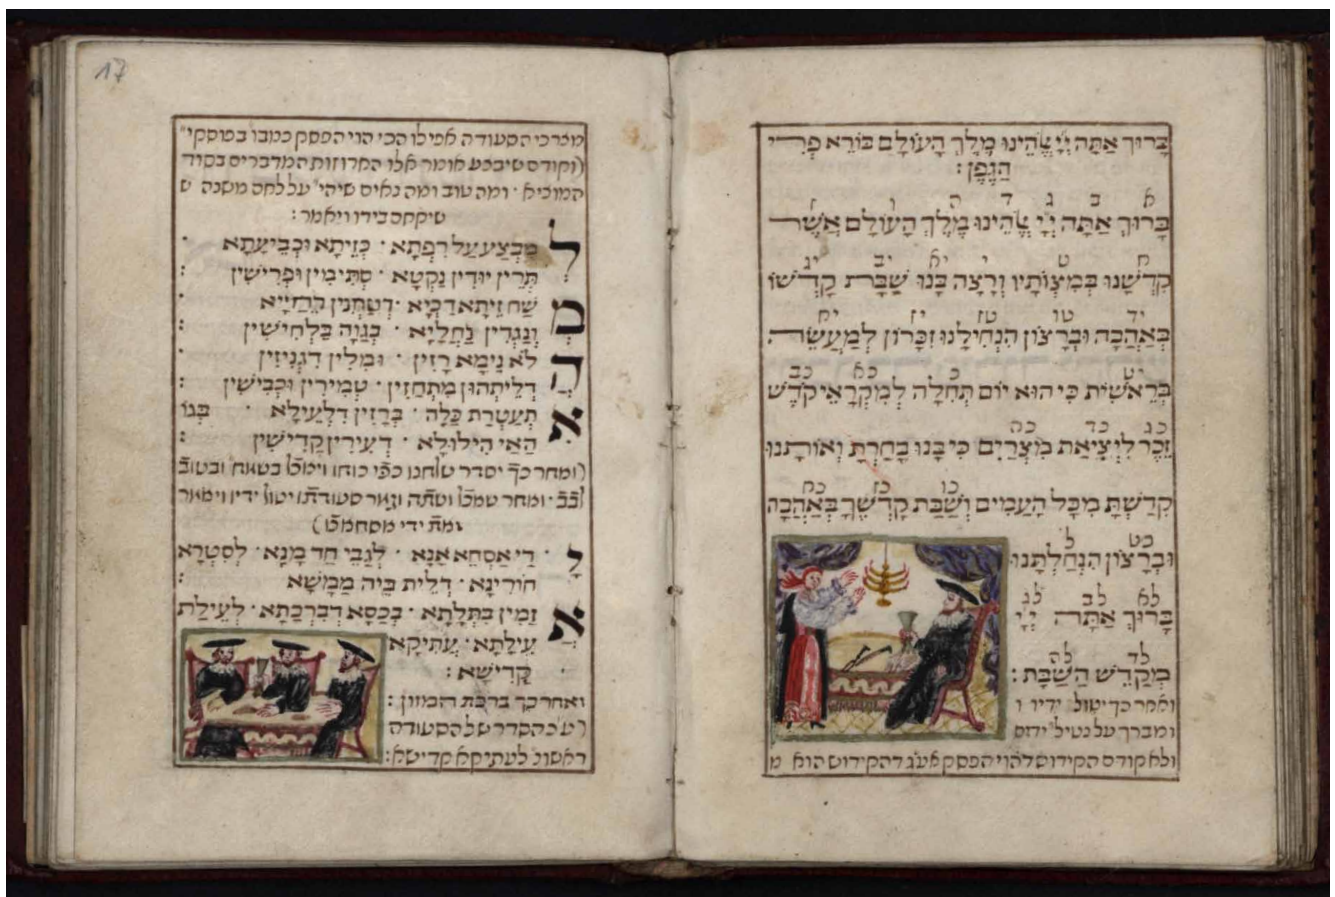 בָּרוּךְ אַתָּה יְיָ אֱלֹהֵינוּ מֶלֶךְ הָעוֹלָם בּוֹרֵא פְּרִי
הַגֶּפֶן:
א ב ג ד ה ו ז
בָּרוּךְ אַתָּה יְיָ אֱלֹהֵינוּ מֶלֶךְ הָעוֹלָם אֲשֶׁר
ח ט י יא יב יג
קִדְּשָׁנוּ בְּמִצְוֹתָיו וְרָצָה בָנוּ שַׁבָּת קָדְשׁוֹ
יד טו טז יז יח
בְּאַהֲבָה וּבְרָצוֹן הִנְחִילָנוּ זִכָּרוֹן לְמַעֲשֵׂה
יט כ כא כב
בְּרֵאשִׁית כִּי הוּא יוֹם תְּחִלָּה לְמִקְרָאֵי קֹדֶשׁ
כג כד כה
זֵכֶר לִיצִיאַת מִצְרַיִם כִּי בָנוּ בָחַרְתָּ וְאוֹתָנוּ
כו כז כח
קִדַּשְׁתָּ מִכָּל הָעַמִּים וְשַׁבַּת קָדְשְׁךָ בְּאַהֲבָה
כט ל
וּבְרָצוֹן הִנְחַלְתָּנוּ
לא לב לג
בָּרוּךְ אַתָּה יְיָ
לד לה
מְקַדֵּשׁ הַשַּׁבָּת:
ואחר כך יטול ידיו ו
ומברך על נטיל' ידים
ולא קודם הקידוש להוי הפסק אע"ג דהקידוש הוא מ
17
מצרכי הסעודה אפילו הכי הוי הפסק כמבו' בפוסקי'
(וקודם שיבצע אומר אלו החרוזות המדברים בסוד
המוציא· ומה טוב ומה נאים שיהי' על לחם משנה ש
שיקחם בידו ויאמר:
לְ מְבַצַּע עַל רִפְתָּא· כְּזֵיתָא וּכְבֵיעֲתָא·
תְּרֵין יוּדִין נַקְטָא· סְתִימִין וּפְרִישִׁין:
מְ שַׁח זֵיתָא דַכְיָא· דְטַחֲנִין רֵחַיָּיא
וְנַגְדִּין נַחֲלַיָּא· בְּגַוָּהּ בִּלְחִישִׁין:
הֲ לֹא נֵימָא רָזִין· וּמִלִּין דִגְנִיזִין
דְלֵיתְהוֹן מִתְחַזִין· טְמִירִין וּכְבִישִׁין:
אִ תְעַטְּרַת כַּלָּה· בְּרָזִין דִלְעֵילָא· בְּגוֹ
הַאי הִילוּלָא· דְעִירִין קַדִּישִׁין:
(ואחר כך יסדר שולחנו כפי כוחו ויאכל בשמח' ובטוב
לבב· ואחר שאכל ושתה וגמר סעודתו יטול ידיו ויאמר
)
יְ דֵי אַסְחֵא אֲנָא· לְגַבֵּי חַד מָנָא· לְסִטְרָא
חוֹרִינָא· דְלֵית בֵּיהּ מַמָשָׁא:
אֲ זַמִין בִּתְלָתָא· בְּכַסָא דְבִרְכָתָא· לְעִילַת
עִילָתָא· עַתִּיקָא
קַדִּישָׁא:
ואחר כך ברכת המזון:
(ע"כ הסדר של הסעודה
ראשונ' לעתיקא קדישא: